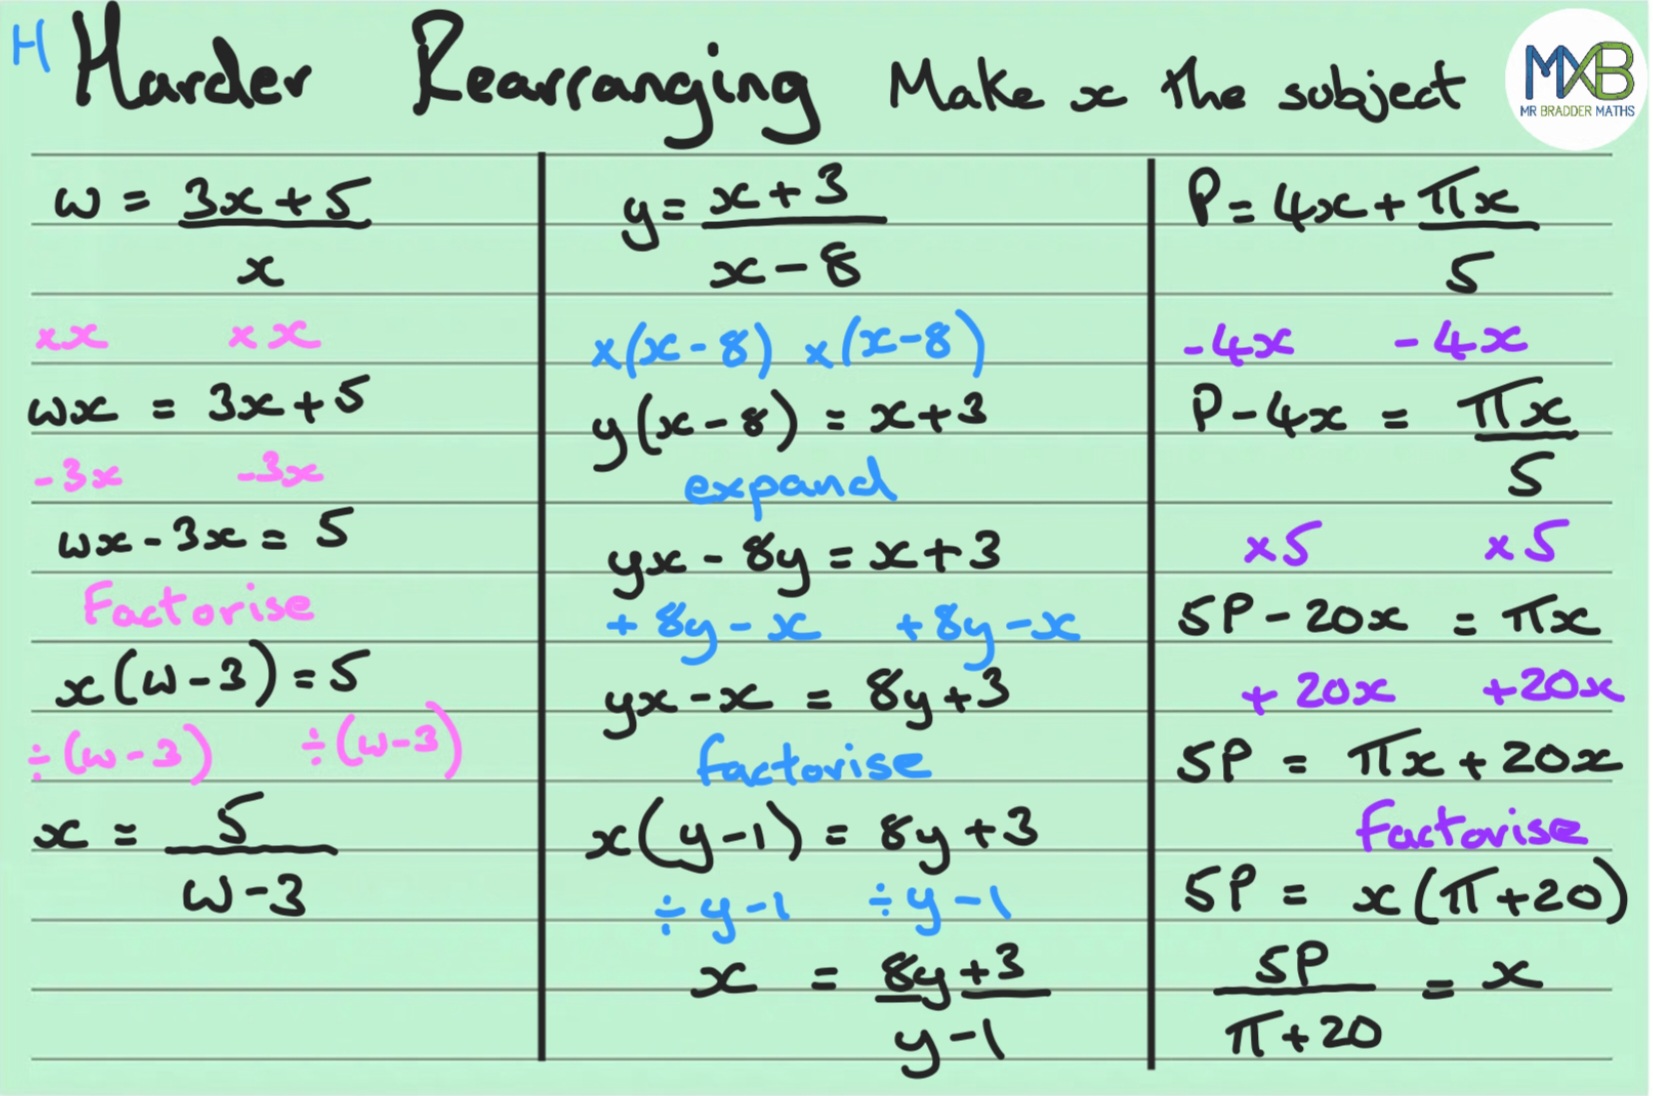 H Harder Rearranging Make x the subject
MXB
MR BRADDER MATHS
w = 3x + 5
x
×x ×x
wx = 3x + 5
-3x -3x
wx - 3x = 5
Factorise
x(w - 3) = 5
÷(w - 3) ÷(w - 3)
x = 5
w - 3
y = x + 3
x - 8
×(x - 8) ×(x - 8)
y(x - 8) = x + 3
expand
yx - 8y = x + 3
+ 8y - x + 8y - x
yx - x = 8y + 3
factorise
x(y - 1) = 8y + 3
÷ y - 1 ÷ y - 1
x = 8y + 3
y - 1
P = 4x + πx
5
- 4x - 4x
P - 4x = πx
5
×5 ×5
5P - 20x = πx
+ 20x + 20x
5P = πx + 20x
factorise
5P = x(π + 20)
5P = x
π + 20